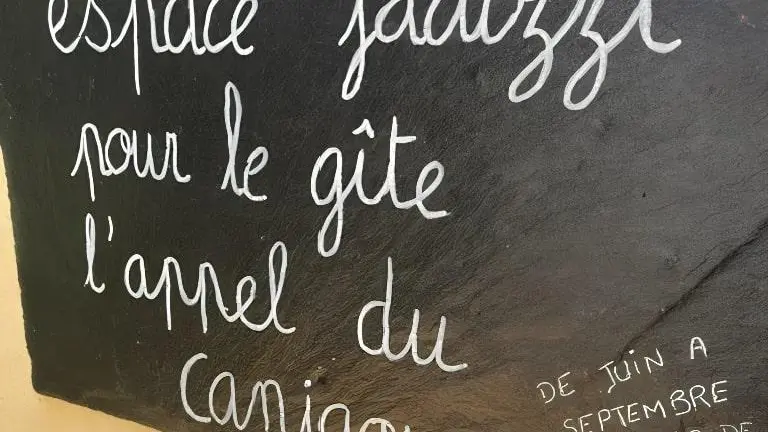 espace jacuzzi
pour le gîte
l'appel du
DE JUIN A
SEPTEMBRE
DE